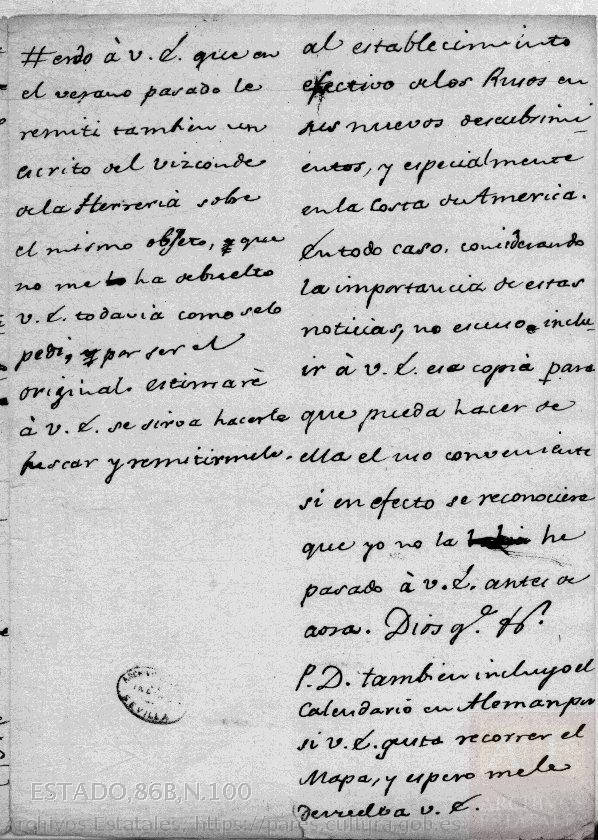 #erdo à V. E. que en
el verano pasado le
remiti tambien un
escrito del Vizconde
de la Herreria sobre
el mismo objeto, y que
no me ha debuelto
V. E. todavia como se lo
pedi, y por ser el
original. estimarè
à V. E. se sirva hacerle
buscar y remitirmele.
al establecimiento
efectivo de los Rusos en
sus nuevos descubrimi-
entos, y especialmente
en la Costa de America.
En todo caso, considerando
la importancia de estas
noticias, no escuso inclu-
ir à V. E. esa copia para
que pueda hacer de
ella el uso conveniente
si en efecto se reconociere
que yo no la he
pasado à V. E. antes de
aora. Dios gͤ. &ͣ.
P.D. tambien incluyo el
Calendario en Aleman por
si V. E. gusta recorrer el
Mapa, y espero me le
devuelva V. E.
SEVILLA
ESTADO,86B,N.100
Archivos Estatales, https://pares.cultura.gob.es